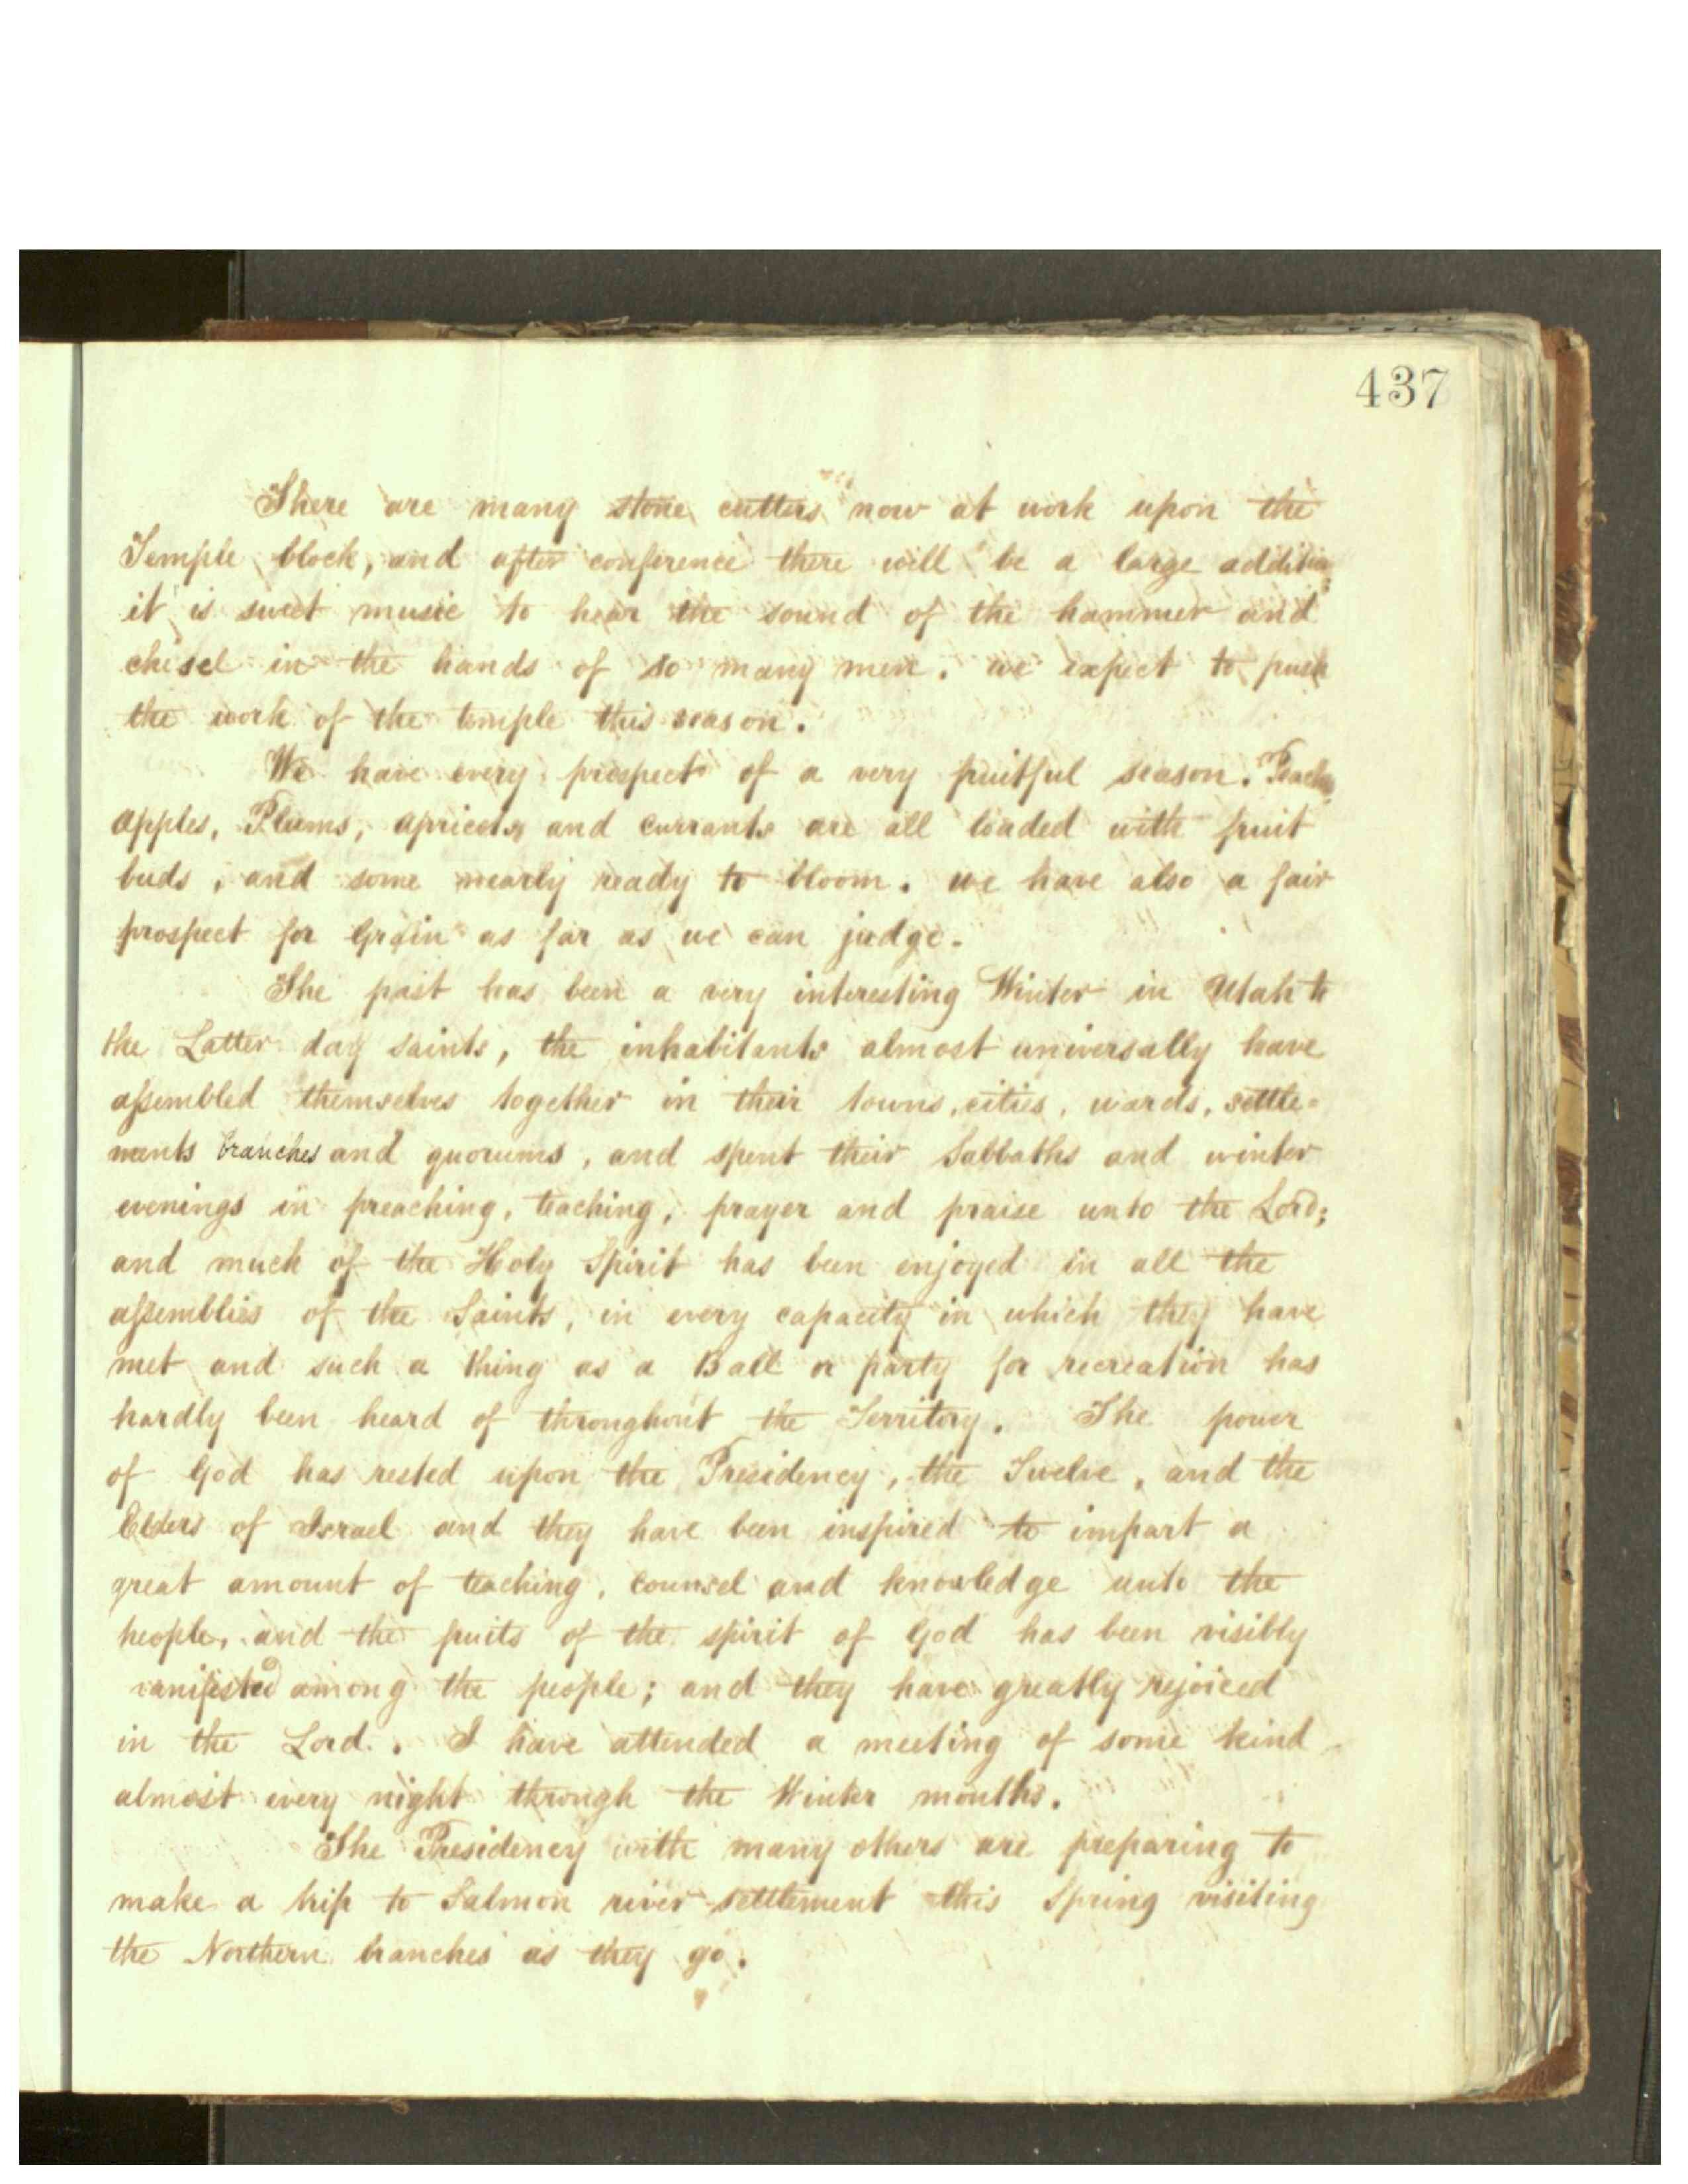 437
There are many stone cutters now at work upon the
Temple block, and after conference there will be a large addition
it is sweet music to hear the sound of the hammer and
chisel in the hands of so many men. we expect to push
the work of the temple this season.
We have every prospect of a very fruitful season. Peach,
apples, Plums, apricots, and currants are all loaded with fruit
buds, and some nearly ready to bloom. we have also a fair
prospect for Grain as far as we can judge.
The past has been a very interesting Winter in Utah to
the Latter day saints, the inhabitants almost universally have
assembled themselves together in their towns, cities, wards, settle-
ments branches and quorums, and spent their Sabbaths and winter
evenings in preaching, teaching, prayer and praise unto the Lord;
and much of the Holy Spirit has been enjoyed in all the
assemblies of the Saints, in every capacity in which they have
met and such a thing as a Ball or party for recreation has
hardly been heard of throughout the Territory. The power
of God has rested upon the Presidency, the Twelve, and the
Elders of Israel and they have been inspired to impart a
great amount of teaching, counsel and knowledge unto the
people, and the fruits of the spirit of God has been visibly
manifested among the people; and they have greatly rejoiced
in the Lord. I have attended a meeting of some kind
almost every night through the Winter months.
The Presidency with many others are preparing to
make a trip to Salmon river settlement this Spring visiting
the Northern branches as they go.